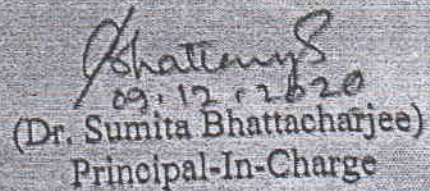 09.12.2020
(Dr. Sumita Bhattacharjee)
Principal-In-Charge